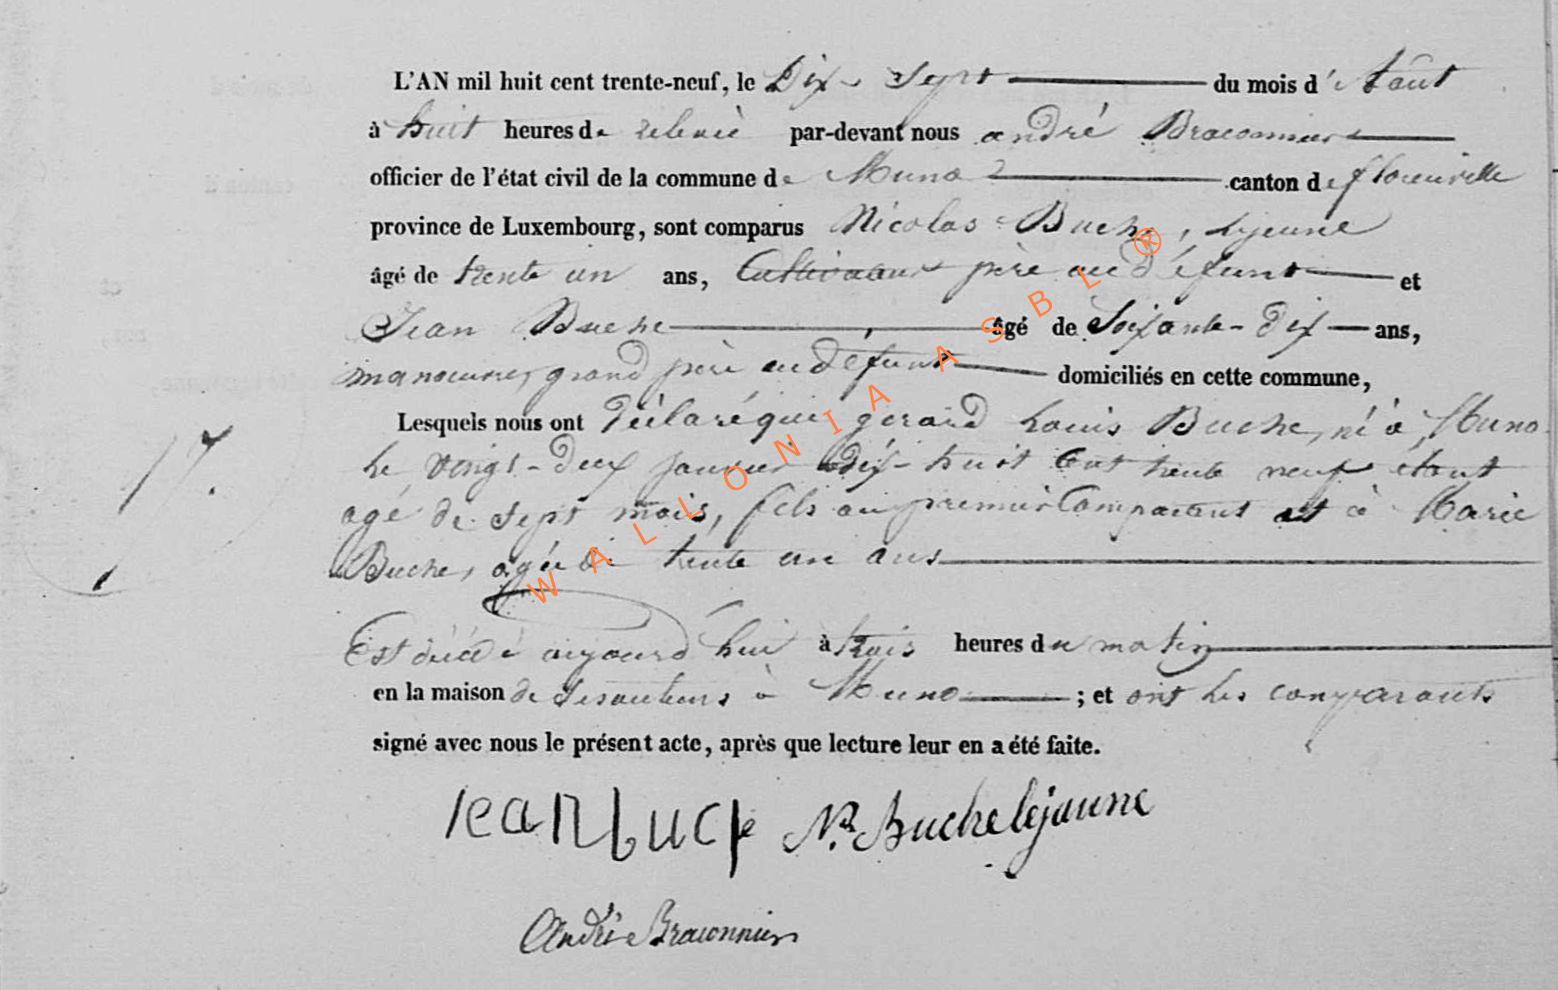 L'AN mil huit cent trente-neuf, le Dix-Sept du mois d'Août
à huit heures de relevée par-devant nous andré Braconnier
officier de l'état civil de la commune de Muno canton de florenville
province de Luxembourg, sont comparus Nicolas Buche, lejeune
âgé de trente un ans, Cultivateur père au défunt et
Jean Buche, âgé de Soixante-Dix ans,
manoeuvre, grand père au défunt domiciliés en cette commune,
Lesquels nous ont déclaré que gerard Louis Buche, né à Muno
le vingt-deux janvier dix-huit Cent trente neuf étant
17.
agé de Sept mois, fils au premier Comparant et à Marie
Buche, agée de trente un ans
Est décédé aujourd'hui à trois heures du matin
en la maison de Ses auteurs à Muno ; et ont les comparants
signé avec nous le présent acte, après que lecture leur en a été faite.
jean buche Ns. Buche lejeunne
André Braconnier
WALLONIA ASBL ®